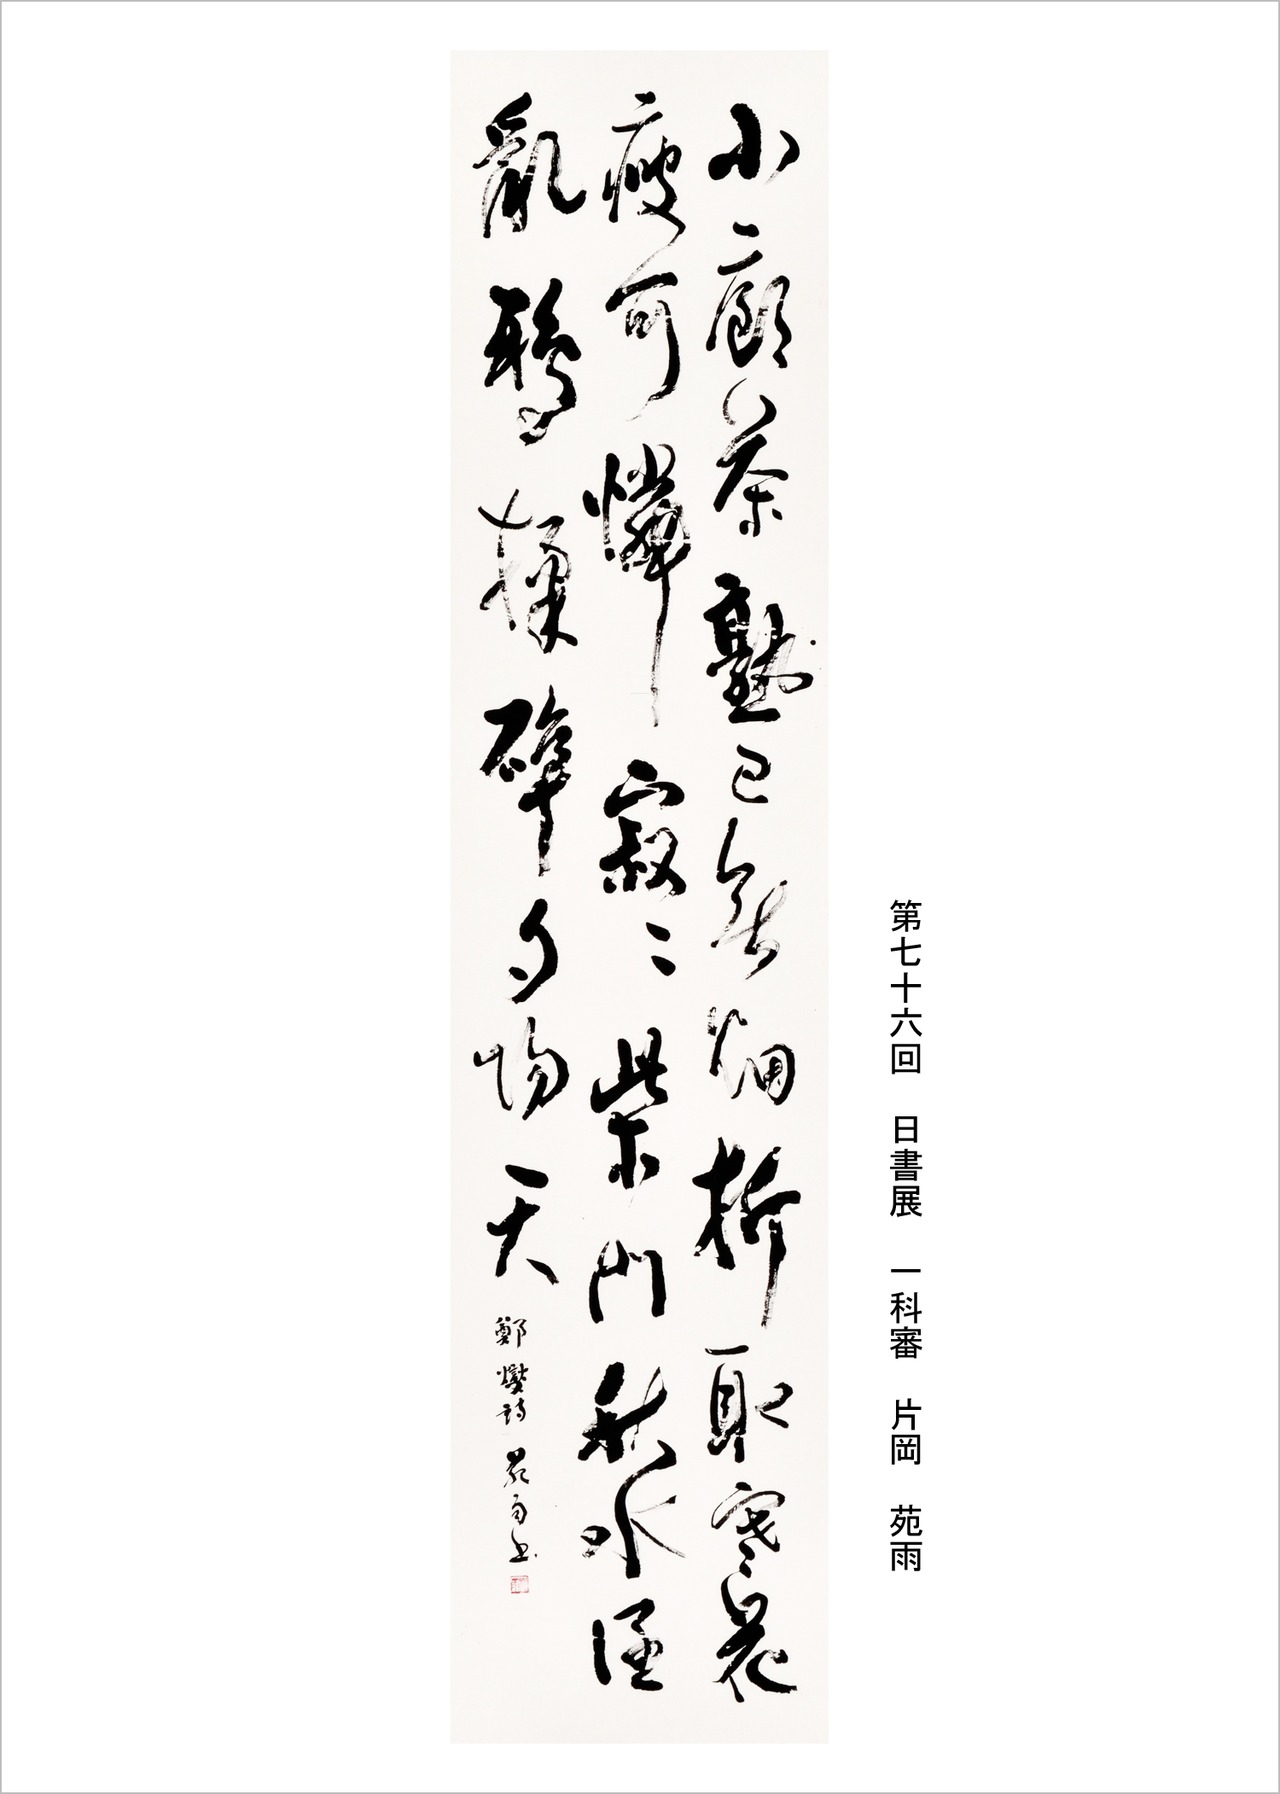 小廊茶熟已無烟折取寒花
瘦可憐寂〻柴門秋水濶
亂鴉揉碎夕陽天
鄭燮詩 苑雨書
第七十六回 日書展 一科審 片岡 苑雨